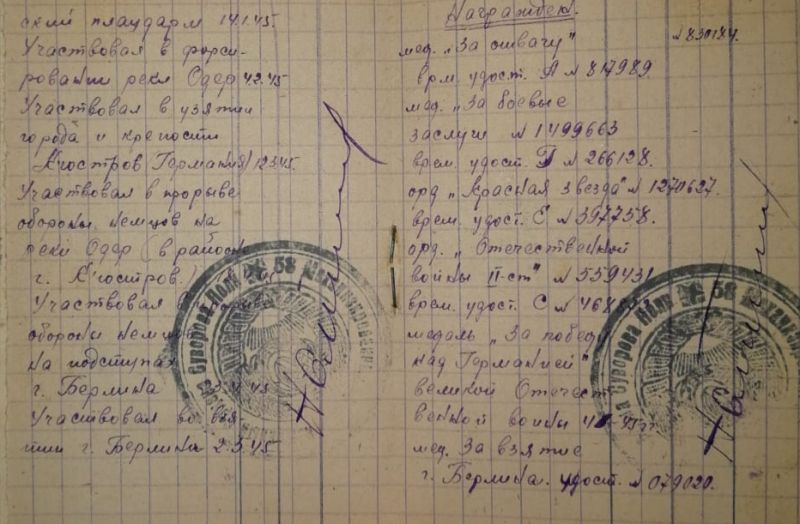 ский плацдарм 14.1.45.
Участвовал в форси-
ровании реки Одер 4.2.45
Участвовал в взятии
города и крепости
Кюстров Германия 12.3.45.
Участвовал в прорыве
обороны немцов на
реки Одер (в районе
г. Кюстров)
Участвовал в
обороны немцов
на подступах
г. Берлина 45
Участвовал во взя
тии г. Берлина 2.5.45
Награжден.
мед. „За отвагу" N 830184.
врм. удост. А N 817989.
мед. „За боевые
заслуги N 1499663
врем. удост. Г N 266128.
орд „Красная звезда" N 1270627.
врем. удост. Е N 397758.
орд. „Отечественной
войны II-ст" N 559431
врем. удост. С N
медаль „За победу
над Германией"
великой Отечест
венной войны
мед. За взятие
г. Берлина. удост. N 079020.
Суворова полк № 58
Суворова полк № 58